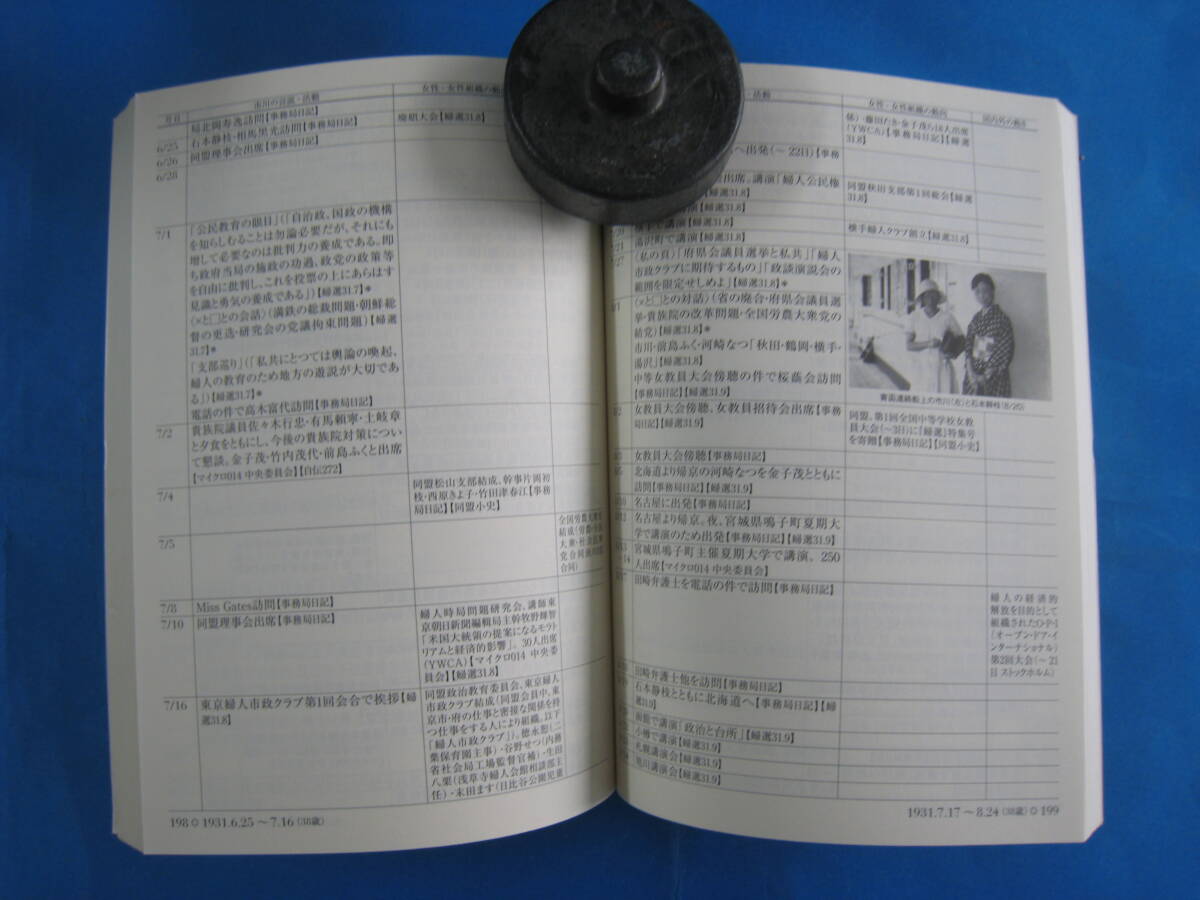 月日
市川の言説・活動
女性・女性組織の動向
局北岡寿逸訪問【事務局日記】
6/25
石本静枝・相馬黒光訪問【事務局日記】
廃娼大会【婦選31.8】
6/26
同盟理事会出席【事務局日記】
6/28
7/1
「公民教育の眼目」(「自治政、国政の機構
を知らしむることは勿論必要だが、それにも
増して必要なのは批判力の養成である。即
ち政府当局の施政の功過、政党の政策等
を自由に批判し、これを投票の上にあらはす
見識と勇気の養成である」)【婦選31.7】*
(×と□との会話)(満鉄の総裁問題・朝鮮総
督の更迭・研究会の党議拘束問題)【婦選
31.7】*
「支部巡り」(「私共にとつては輿論の喚起、
婦人の教育のため地方の遊説が大切であ
る」)【婦選31.7】*
電話の件で高木富代訪問【事務局日記】
7/2
貴族院議員佐々木行忠・有馬頼寧・土岐章
と夕食をともにし、今後の貴族院対策につい
て懇談。金子茂・竹内茂代・前島ふくと出席
【マイクロ014 中央委員会】【自伝272】
7/4
同盟松山支部結成。幹事片岡初
枝・西原きよ子・竹田津春江【事務
局日記】【同盟小史】
7/5
全国労農大衆
結成(労農・
大衆・社会
党合同
合同)
7/8
Miss Gates訪問【事務局日記】
7/10
同盟理事会出席【事務局日記】
婦人時局問題研究会、講師東
京朝日新聞編輯局主幹牧野輝智
「米国大統領の提案になるモラト
リアムと経済的影響」。30人出席
(YWCA)【マイクロ014 中央委
員会】【婦選31.8】
7/16
東京婦人市政クラブ第1回会合で挨拶【婦
選31.8】
同盟政治教育委員会、東京婦人
市政クラブ結成(同盟会員中、東
京市・府の仕事と密接な関係を持
つ仕事をする人により組織。以下
「婦人市政クラブ」)。徳永恕(二
葉保育園主事)・谷野せつ(内務
省社会局工場監督官補)・生田
八栗(浅草寺婦人会館相談部主
任)・末田ます(日比谷公園児童
198 ○ 1931.6.25 ～ 7.16 (38歳)
活動
女性・女性組織の動向
国内外の動き
係)・藤田たき・金子茂ら18人出席
(YWCA)【事務局日記】【婦選
31.8】
へ出発(～22日)【事務
出席。講演「婦人公民権
【婦選31.8】
同盟秋田支部第1回総会【婦選
31.8】
講演【婦選31.8】
横手で講演【婦選31.8】
横手婦人クラブ創立【婦選31.8】
湯沢町で講演【婦選31.8】
(私の頁)「府県会議員選挙と私共」「婦人
市政クラブに期待するもの」「政談演説会の
範囲を限定せしめよ」【婦選31.8】*
(×と□との対話)(省の廃合・府県会議員選
挙・貴族院の改革問題・全国労農大衆党の
結党)【婦選31.8】*
市川・前島ふく・河崎なつ「秋田・鶴岡・横手・
湯沢」【婦選31.8】
中等女教員大会傍聴の件で桜蔭会訪問
【事務局日記】【婦選31.9】
青函連絡船上の市川(左)と石本静枝(8/20)
女教員大会傍聴、女教員招待会出席【事務
局日記】【婦選31.9】
同盟、第1回全国中等学校女教
員大会(～3日)に『婦選』特集号
を寄贈【事務局日記】【同盟小史】
女教員大会傍聴【事務局日記】
北海道より帰京の河崎なつを金子茂とともに
訪問【事務局日記】【婦選31.9】
名古屋に出発【事務局日記】
名古屋より帰京。夜、宮城県鳴子町夏期大
学で講演のため出発【事務局日記】【婦選31.9】
宮城県鳴子町主催夏期大学で講演。250
人出席【マイクロ014 中央委員会】
田崎弁護士を電話の件で訪問【事務局日記】
婦人の経済的
解放を目的として
組織されたO・P・I
(オープン・ドア・イ
ンターナショナル)
第2回大会(～21
日 ストックホルム)
田崎弁護士他を訪問【事務局日記】
石本静枝とともに北海道へ【事務局日記】【婦
選31.9】
函館で講演「政治と台所」【婦選31.9】
小樽で講演【婦選31.9】
札幌講演会【婦選31.9】
旭川講演会【婦選31.9】
1931.7.17 ～ 8.24 (38歳) ○ 199